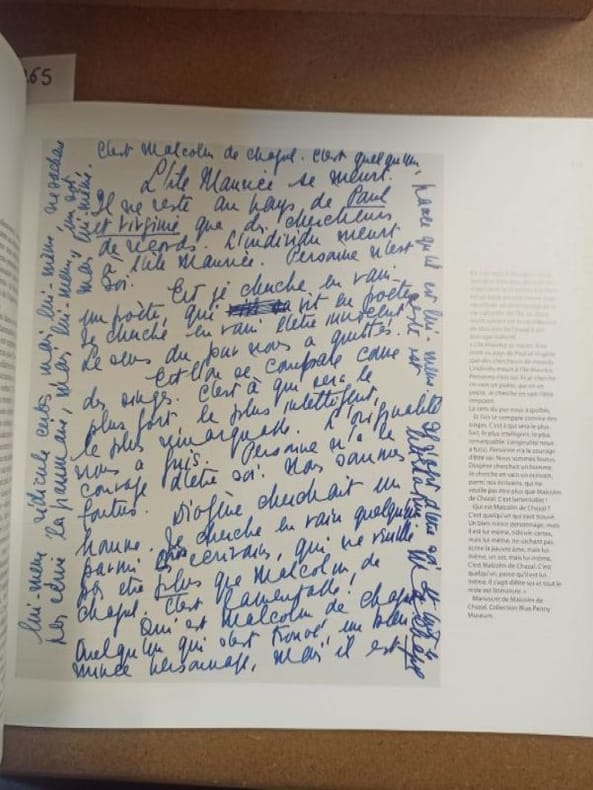 265
L'île Maurice se meurt.
Il ne reste au pays de Paul
et Virginie que des chercheurs
de records. L'individu meurt
à l'île Maurice. Personne n'est
soi.
Et je cherche en vain
un poète, qui vit en poète.
Je cherche en vain l'être innocent.
Le sens du pur nous a quittés.
Et l'on se compare comme
des singes. C'est à qui sera le
plus fort, le plus intelligent,
le plus remarquable. L'originalité
nous a fuis. Personne n'a le
courage d'être soi. Nous sommes
foutus.
Diogène cherchait un
homme. Je cherche en vain quelqu'un
parmi nos écrivains, qui ne veuille
pas être plus que Malcolm de
Chazal. C'est lamentable !
Qui est Malcolm de Chazal
Quelqu'un qui s'est trouvé, un bien
mince personnage, mais il est
lui-même ridicule certes mais lui-même, ne sachant
pas écrire la pauvre âme, mais lui-même, un sot,
mais lui-même.
C'est Malcolm de Chazal. C'est quelqu'un,
parce qu'il est lui-même
Il s'agit d'être soi et tout le
reste est
littérature
M de Chazal
« L'île Maurice se meurt. Il ne
reste au pays de Paul et Virginie
que des chercheurs de records.
L'individu meurt à l'île Maurice.
Personne n'est soi. Et je cherche
en vain un poète, qui vit en
poète. Je cherche en vain l'être
innocent.
Le sens du pur nous a quittés.
Et l'on se compare comme des
singes. C'est à qui sera le plus
fort, le plus intelligent, le plus
remarquable. L'originalité nous
a fuis. Personne n'a le courage
d'être soi. Nous sommes foutus.
Diogène cherchait un homme.
Je cherche en vain un écrivain,
parmi nos écrivains, qui ne
veuille pas être plus que Malcolm
de Chazal. C'est lamentable !
Qui est Malcolm de Chazal ?
C'est quelqu'un qui s'est trouvé.
Un bien mince personnage, mais
il est lui-même, ridicule certes,
mais lui-même, ne sachant pas
écrire la pauvre âme, mais lui-
même, un sot, mais lui-même.
C'est Malcolm de Chazal. C'est
quelqu'un, parce qu'il est lui-
même. Il s'agit d'être soi et tout le
reste est littérature. »
Manuscrit de Malcolm de
Chazal. Collection Blue Penny
Museum.